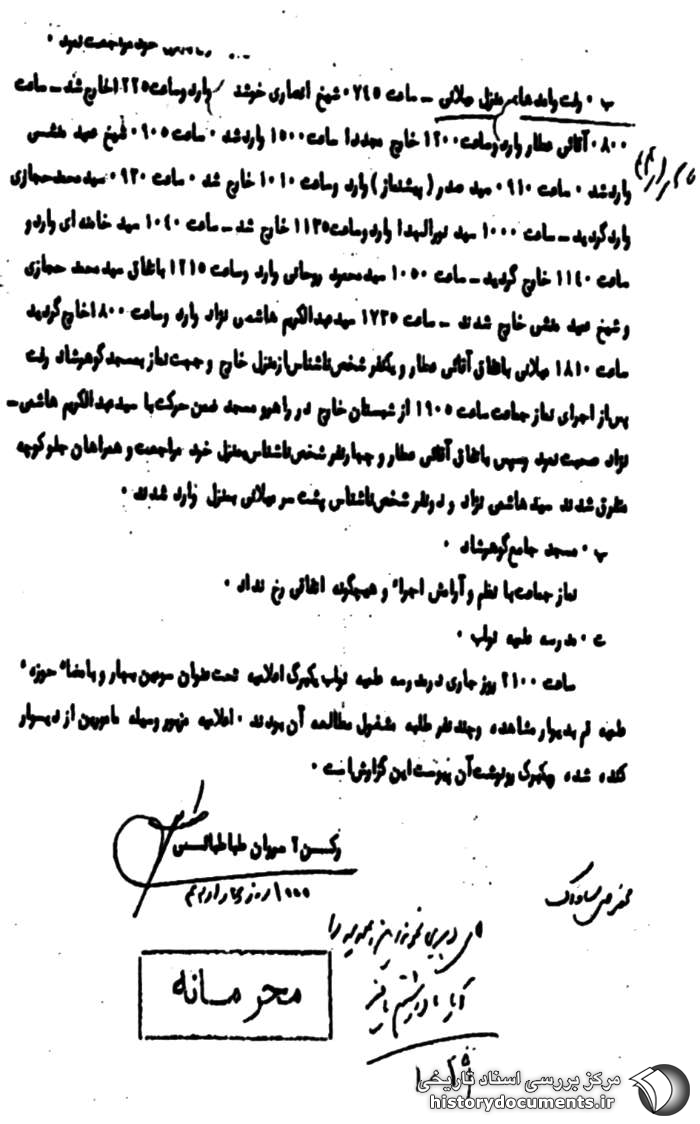 خود مراجعت نمود .
ب . رفت و آمدهای منزل میلانی ــ ساعت ۰۷۴۵ شیخ انصاری خرشد وارد و ساعت ۱۲۲۵ خارج شد ــ ساعت
۰۸۰۰ آقائی عطار وارد و ساعت ۱۲۰۰ خارج مجددا ساعت ۱۵۰۰ وارد شد . ساعت ۰۹۰۵ شیخ صید منشی
وارد شد . ساعت ۰۹۱۰ سید صدر ( پیشنماز ) وارد و ساعت ۱۰۱۰ خارج شد . ساعت ۰۹۳۰ سید محمد حجازی
وارد گردید ــ ساعت ۱۰۰۰ سید نورالهدا وارد و ساعت ۱۱۳۵ خارج شد ــ ساعت ۱۰۴۰ سید خامنه ای وارد و
ساعت ۱۱۴۰ خارج گردید ــ ساعت ۱۰۵۰ سید محمود روحانی وارد و ساعت ۱۲۱۵ باتفاق سید محمد حجازی
و شیخ صید منشی خارج شدند ــ ساعت ۱۷۳۵ سید عبدالکریم هاشمی نژاد وارد و ساعت ۱۸۰۰ خارج گردید
ساعت ۱۸۱۰ میلانی باتفاق آقائی عطار و یکنفر شخص ناشناس از منزل خارج و جهت نماز بمسجد گوهرشاد رفت
پس از اجرای نماز جماعت ساعت ۱۹۰۵ از شبستان خارج در راهرو مسجد ضمن حرکت با سید عبدالکریم هاشمی ــ
نژاد صحبت نمود و سپس باتفاق آقائی عطار و چهارنفر شخص ناشناس بمنزل خود مراجعت و همراهان جلو کوچه
متفرق شدند سید هاشمی نژاد و دو نفر شخص ناشناس پشت سر میلانی بمنزل وارد شدند .
ب . مسجد جامع گوهرشاد .
نماز جماعت با نظم و آرامش اجراء و هیچگونه اتفاقی رخ نداد .
ت . مدرسه علمیه نواب .
ساعت ۲۱۰۰ روز جاری در مدرسه علمیه نواب یکبرگ اعلامیه تحت عنوان سومین بهار و بامضاء حوزه
علمیه قم بدیوار مشاهده و چند نفر طلبه مشغول مطالعه آن بودند . اعلامیه مزبور وسیله مامورین از دیوار
کنده شده و یکبرگ رونوشت آن پیوست این گزارش است .
رکن ۲ سروان طباطبائی
محرمانه
مرکز بررسی اسناد تاریخی
historydocuments.ir